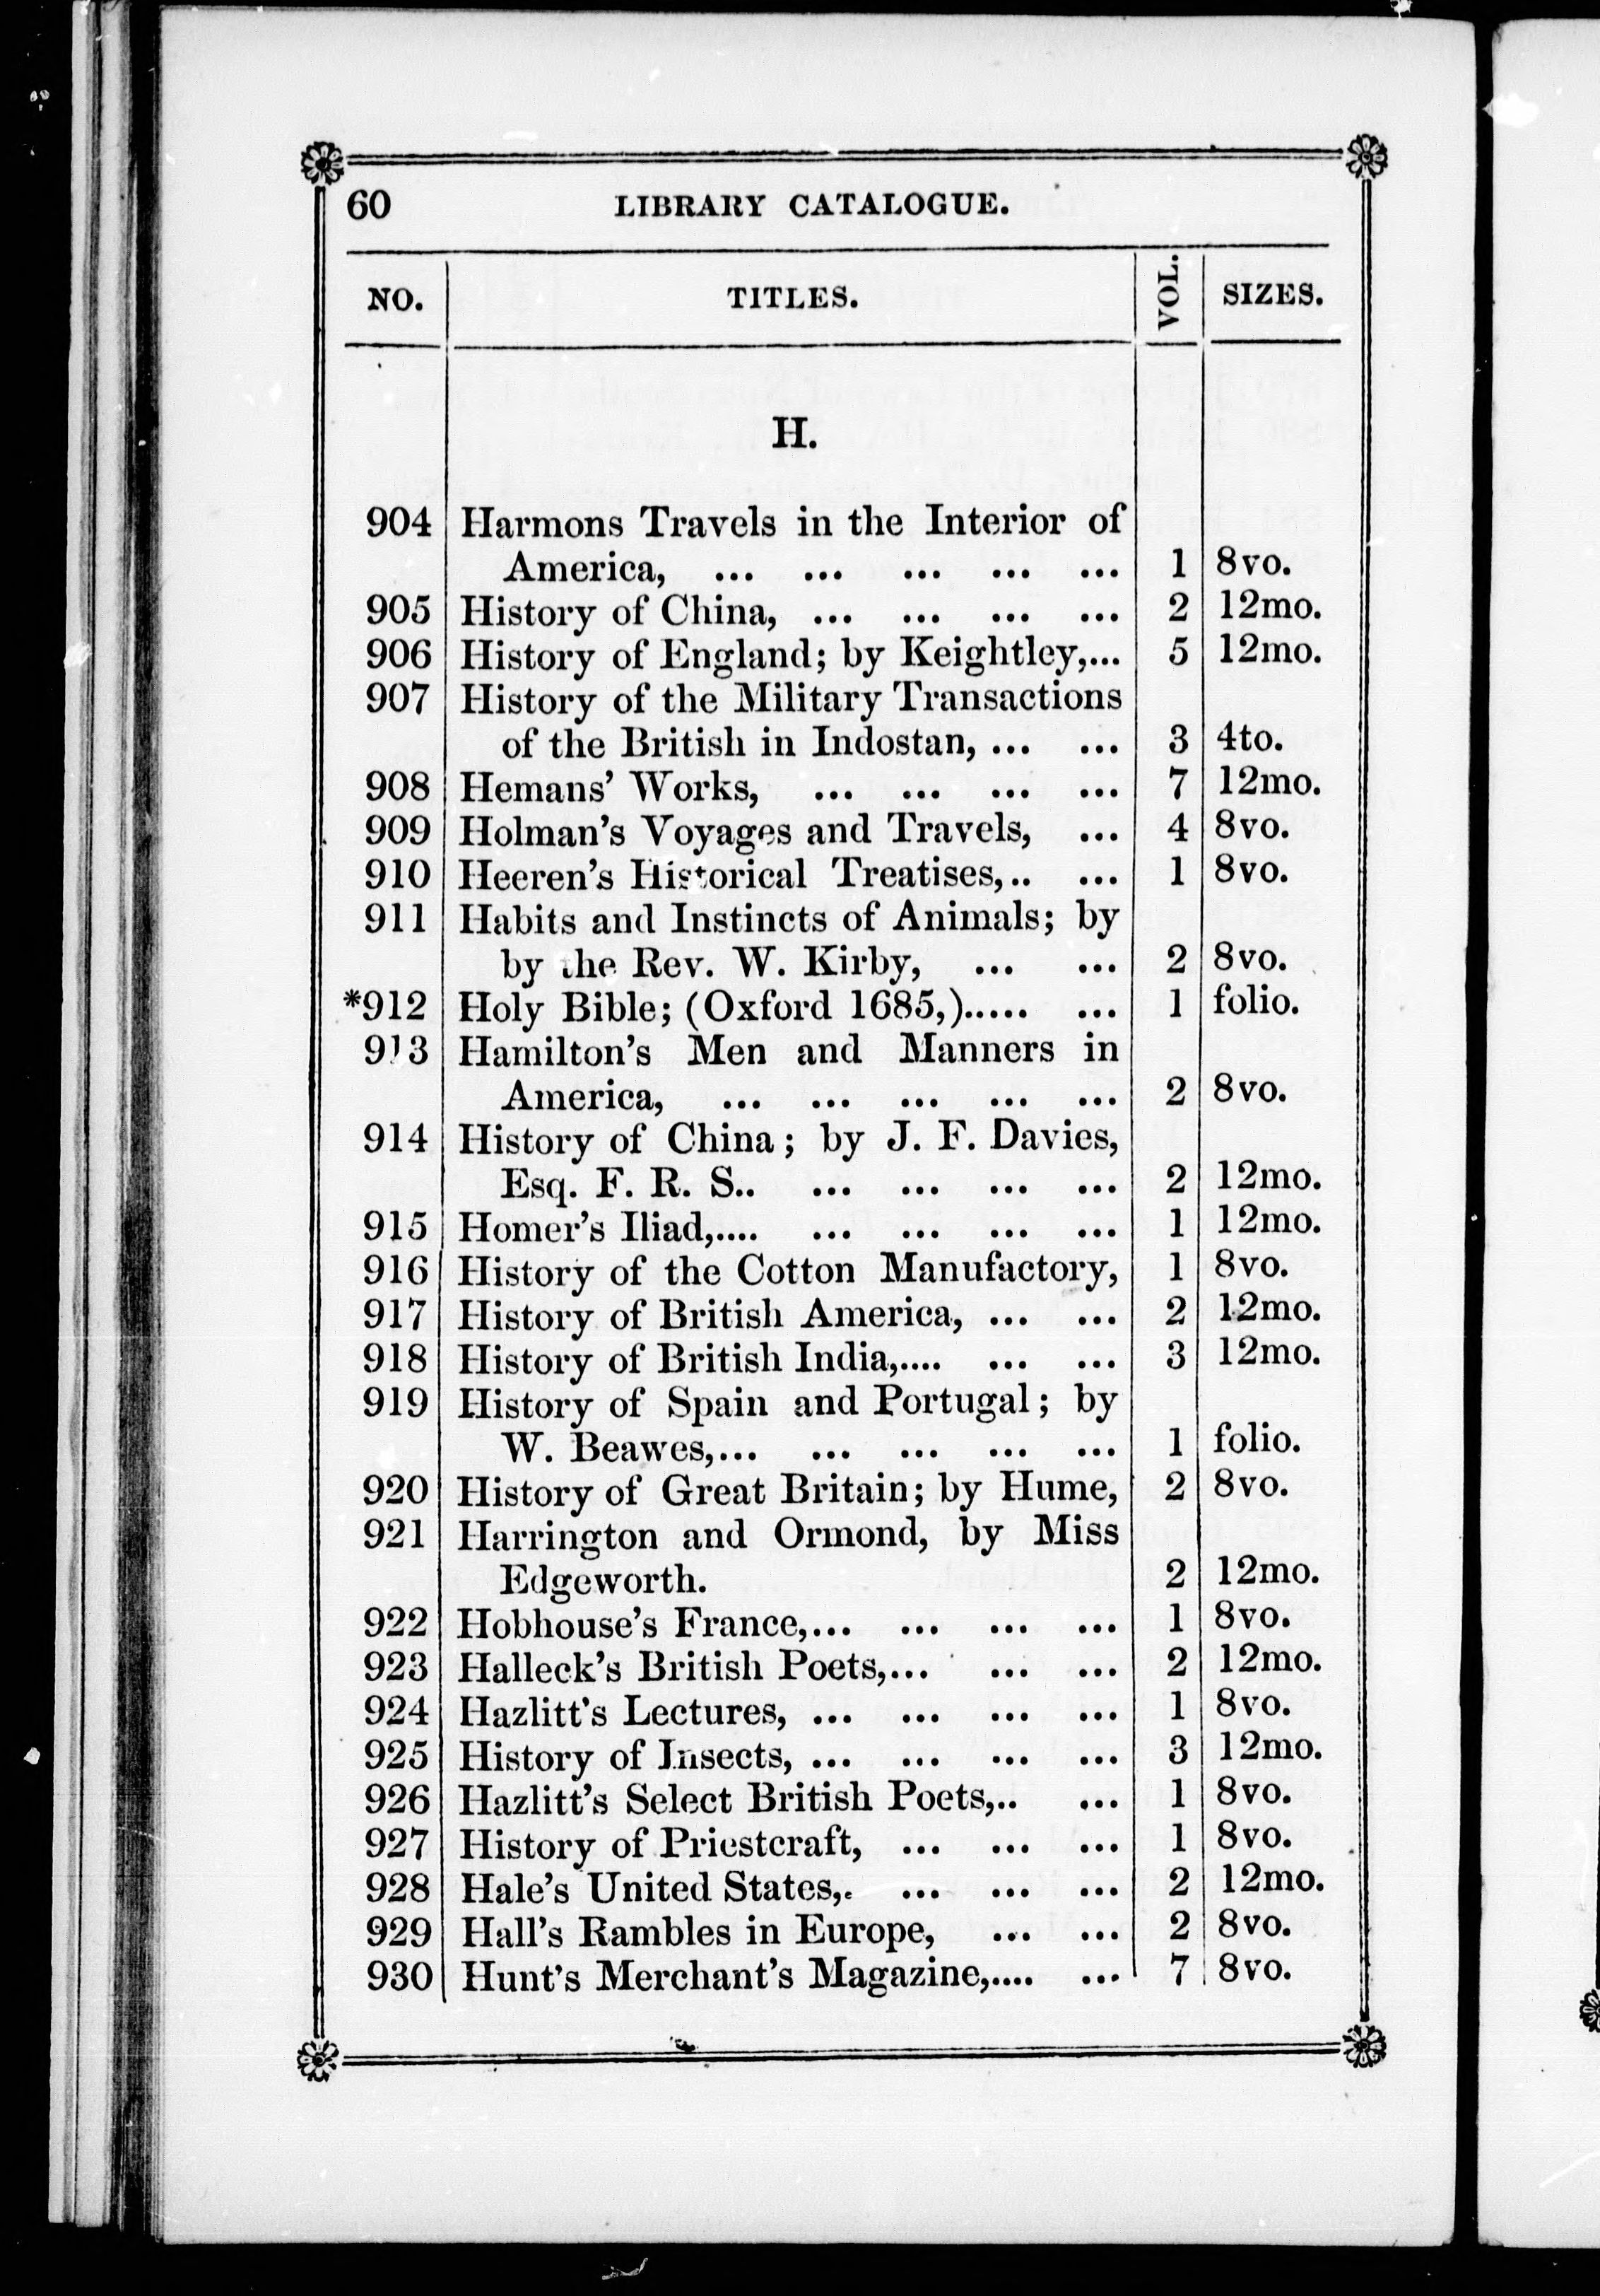 60 LIBRARY CATALOGUE.
NO. TITLES. VOL. SIZES.
H.
904 Harmons Travels in the Interior of
America, ... ... ... ... ... 1 8vo.
905 History of China, ... ... ... ... 2 12mo.
906 History of England; by Keightley,... 5 12mo.
907 History of the Military Transactions
of the British in Indostan, ... ... 3 4to.
908 Hemans' Works, ... ... ... ... 7 12mo.
909 Holman's Voyages and Travels, ... 4 8vo.
910 Heeren's Historical Treatises,.. ... 1 8vo.
911 Habits and Instincts of Animals; by
by the Rev. W. Kirby, ... ... 2 8vo.
*912 Holy Bible; (Oxford 1685,)..... ... 1 folio.
913 Hamilton's Men and Manners in
America, ... ... ... ... ... 2 8vo.
914 History of China; by J. F. Davies,
Esq. F. R. S.. ... ... ... ... 2 12mo.
915 Homer's Iliad,.... ... ... ... ... 1 12mo.
916 History of the Cotton Manufactory, 1 8vo.
917 History of British America, ... ... 2 12mo.
918 History of British India,.... ... ... 3 12mo.
919 History of Spain and Portugal; by
W. Beawes,... ... ... ... ... 1 folio.
920 History of Great Britain; by Hume, 2 8vo.
921 Harrington and Ormond, by Miss
Edgeworth. 2 12mo.
922 Hobhouse's France,... ... ... ... 1 8vo.
923 Halleck's British Poets,... ... ... 2 12mo.
924 Hazlitt's Lectures, ... ... ... ... 1 8vo.
925 History of Insects, ... ... ... ... 3 12mo.
926 Hazlitt's Select British Poets,.. ... 1 8vo.
927 History of Priestcraft, ... ... ... 1 8vo.
928 Hale's United States,. ... ... ... 2 12mo.
929 Hall's Rambles in Europe, ... ... 2 8vo.
930 Hunt's Merchant's Magazine,.... ... 7 8vo.